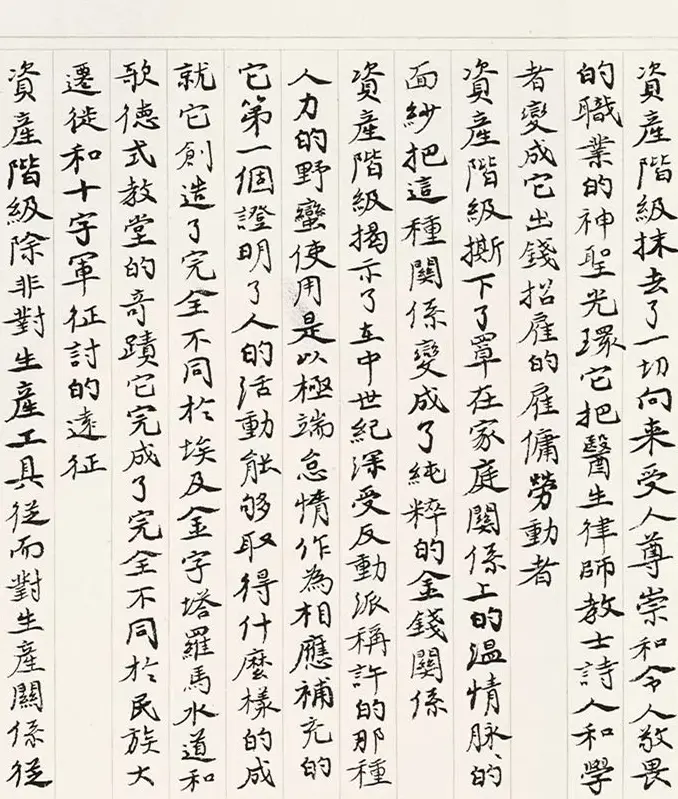 資產階級抹去了一切向来受人尊崇和令人敬畏
的職業的神聖光環它把醫生律師教士詩人和學
者變成它出錢招雇的雇傭勞動者
資產階級撕下了罩在家庭關係上的温情脉、的
面紗把這種關係變成了純粹的金錢關係
資產階級揭示了在中世紀深受反動派稱許的那種
人力的野蠻使用是以極端怠惰作為相應補充的
它第一個證明了人的活動能够取得什麼樣的成
就它創造了完全不同於埃及金字塔羅馬水道和
歌德式教堂的奇蹟它完成了完全不同於民族大
遷徙和十字軍征討的遠征
資產階級除非對生產工具從而對生產關係從